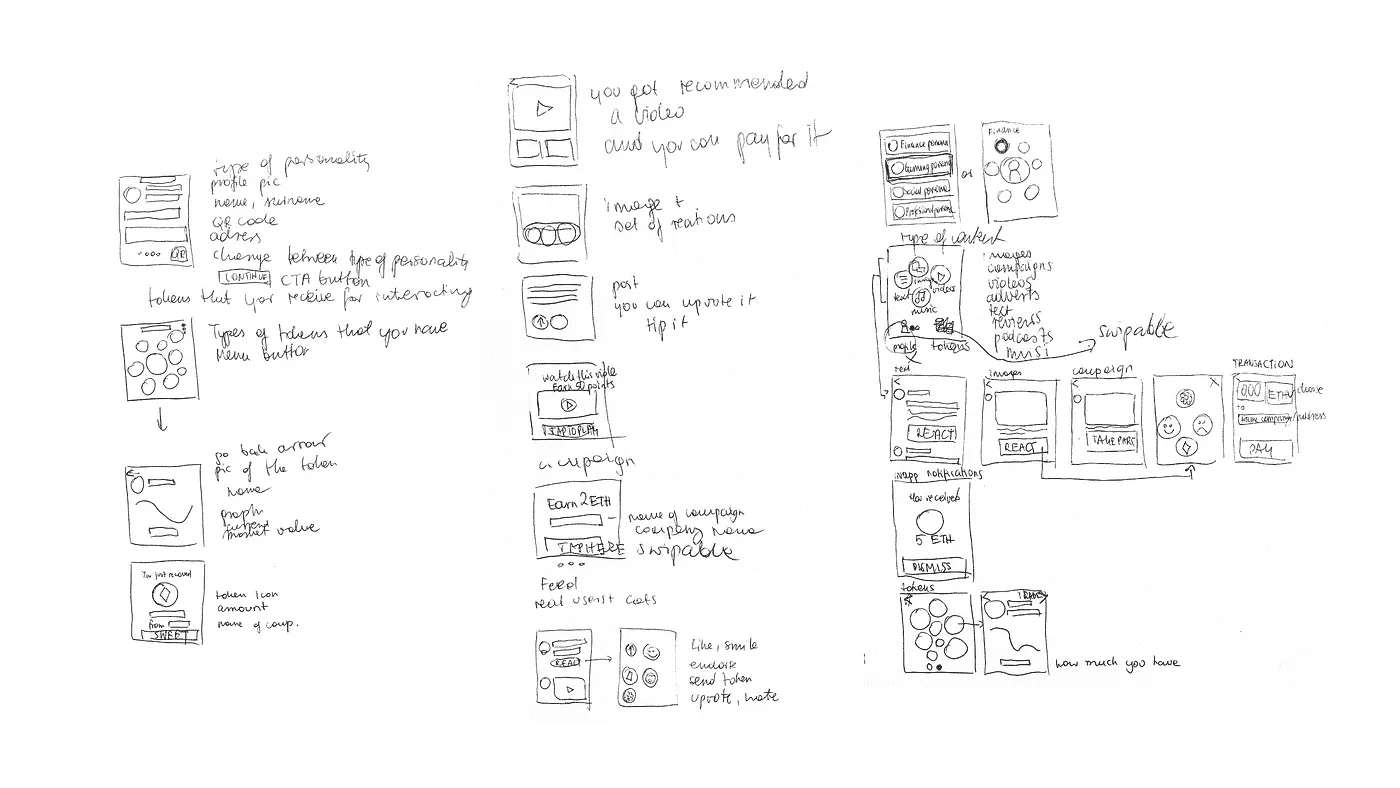 type of personality
profile pic
name, surname
QR code
adress
QR
change between type of personality
CONTINUE CTA button
tokens that you receive for interacting
Types of tokens that you have
Menu button
go back arrow
pic of the token
name
graph
current
market value
You just received
from
SWEET
token icon
amount
name of comp.
you got recommended
a video
and you can pay for it
image +
set of reations
post
you can upvote it
tip it
watch this video
Earn 50 points
TAP TO PLAY
campaign
Earn 2 ETH
TAP HERE
name of campaign
company name
swipable
Feed
real users + cats
REACT
Like, smile
endorse
send token
upvote,
Finance persona
Gaming persona
Social persona
Professional persona
or
Finance
type of content
images
campaigns
videos
adverts
text
reviews
podcasts
musi
text
image
videos
music
profile
tokens
swipable
text
REACT
images
REACT
campaign
TAKE PART
TRANSACTION
0.00
ETH
choose
name company/address
PAY
inapp notifications
You received
5 ETH
DISMISS
tokens
how much you have